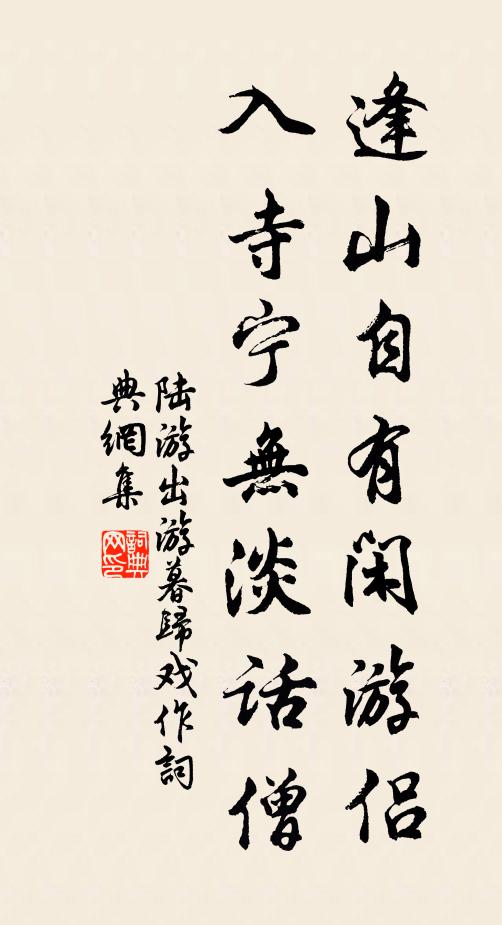 逢山自有閑游侣
入寺宁無淡話僧
陆游出游暮歸戏作詞
典網集
詞典网印